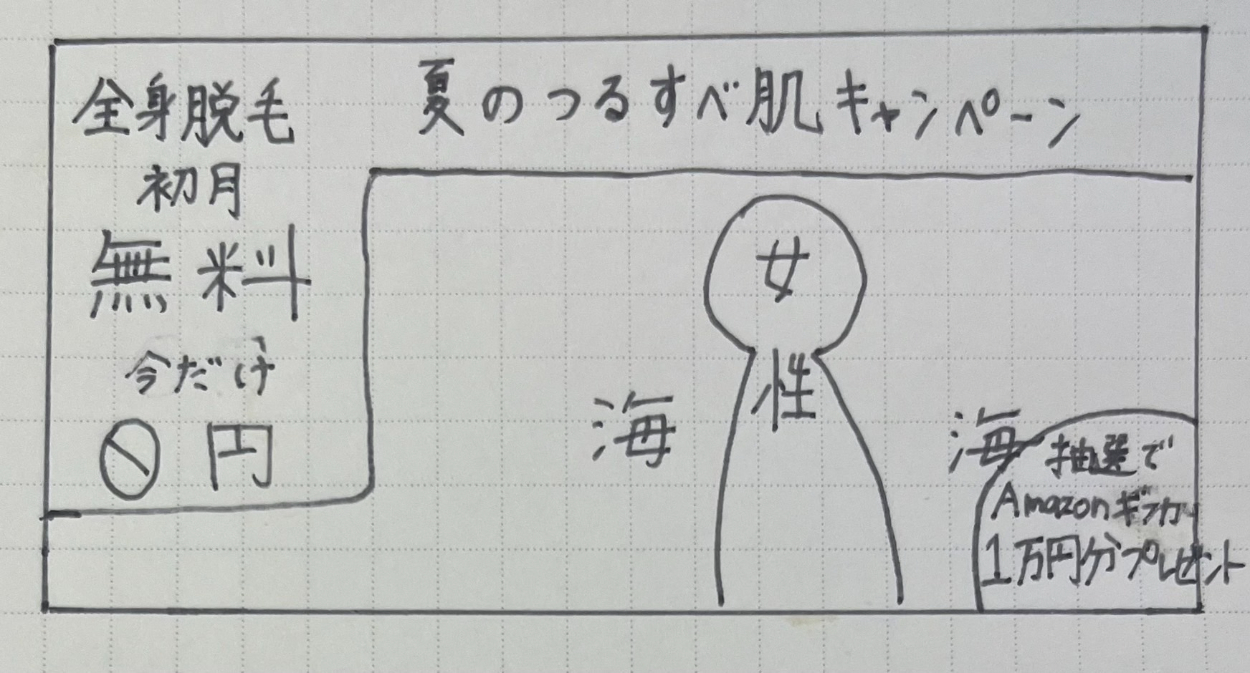 夏のつるすべ肌キャンペーン
全身脱毛
初月
無料
今だけ
0円
女
性
海
海
抽選で
Amazonギフカ
1万円分プレゼント